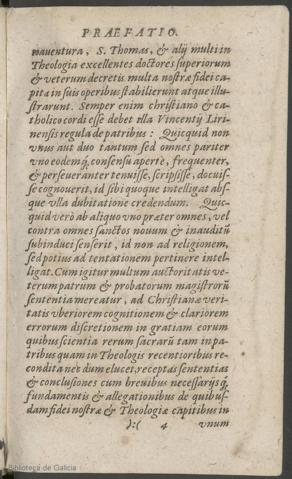 PRAEFATIO.
nauentura, S. Thomas, & alij multi in
Theologia excellentes doctores superiorum
& veterum decretis multa nostræ fidei ca-
pita in suis operibus stabilierunt atque illu-
strarunt. Semper enim christiano & ca-
tholico cordi esse debet illa Vincentij Liri-
nensis regula de patribus: Quicquid non
vnus aut duo tantum sed omnes pariter
vno eodemq́; consensu apertè, frequenter,
& perseueranter tenuisse, scripsisse, docuis-
se cognouerit, id sibi quoque intelligat abs-
que vlla dubitatione credendum. Quic-
quid verò ab aliquo vno præter omnes, vel
contra omnes sanctos nouum & inauditū
subinduci senserit, id non ad religionem,
sed potius ad tentationem pertinere intel-
ligat. Cum igitur multum auctoritatis ve-
terum patrum & probatorum magistrorū
sententia mereatur, ad Christianæ veri-
tatis vberiorem cognitionem & clariorem
errorum discretionem in gratiam eorum
quibus scientia rerum sacrarū tam in pa-
tribus quam in Theologis recentioribus re-
condita nes dum elucet, receptas sententias
& conclusiones cum breuibus necessarijsq́;
fundamentis & allegationibus de quibus-
dam fidei nostræ & Theologiæ capitibus in
):( 4 vnum
Biblioteca de Galicia